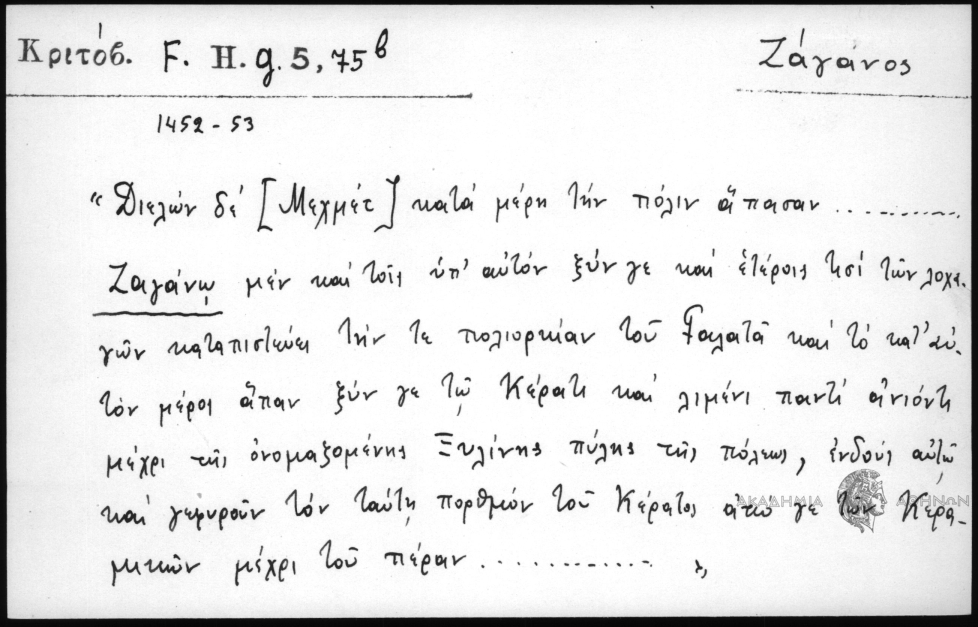 Κριτόβ. F. H. g. 5, 75 b
Ζάγάνος
1452 - 53
"Διελών δέ [Μεχμέτ] κατά μέρη τήν πόλιν ἅπασαν ............
Ζαγάνῳ μέν καί τοῖς ὑπ' αὐτόν ξύν γε καί ἑτέροις τισί τῶν λοχα-
γῶν καταπιστεύει τήν τε πολιορκίαν τοῦ Γαλατᾶ καί τό κατ' αὐ-
τόν μέρος ἅπαν ξύν γε τῷ Κέρατι καί λιμένι παντί ἀνιόντι
μέχρι τῆς ὀνομαζομένης Ξυλίνης πύλης τῆς πόλεως, ἐνδούς αὐτῷ
καί γεφυροῦν τόν ταύτῃ πορθμόν τοῦ Κέρατος ἀπό γε τῶν Κέρα-
μικῶν μέχρι τοῦ πέραν ............ "
ΑΚΑΔΗΜΙΑ ΑΘΗΝΩΝ